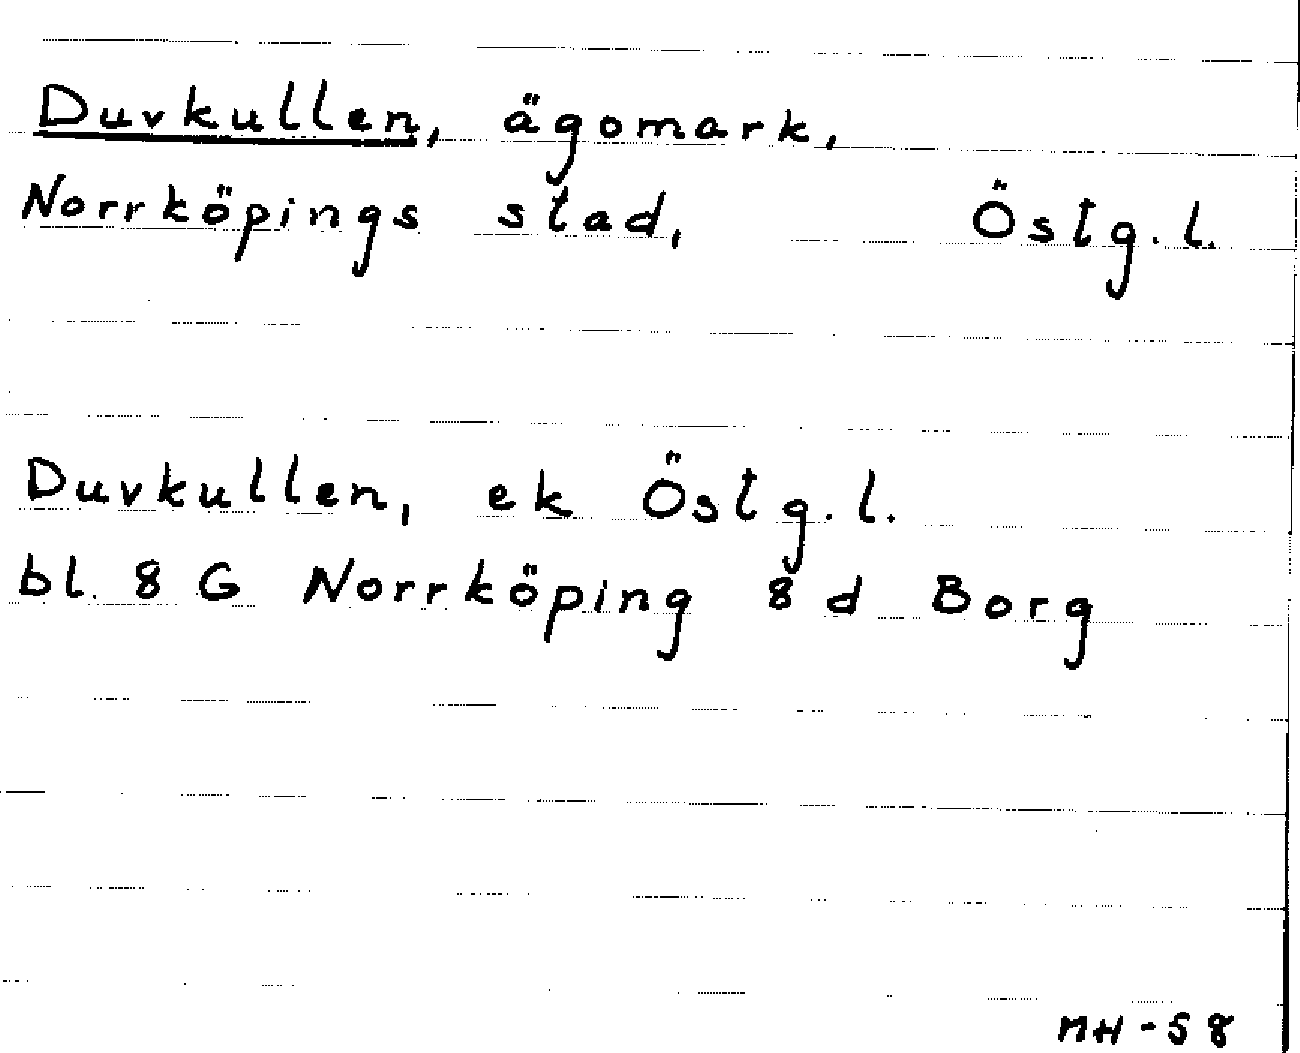 Duvkullen, ägomark,
Norrköpings stad, Östg.l.
Duvkullen, ek Östg.l.
bl. 8 G Norrköping 8 d Borg
MH-58